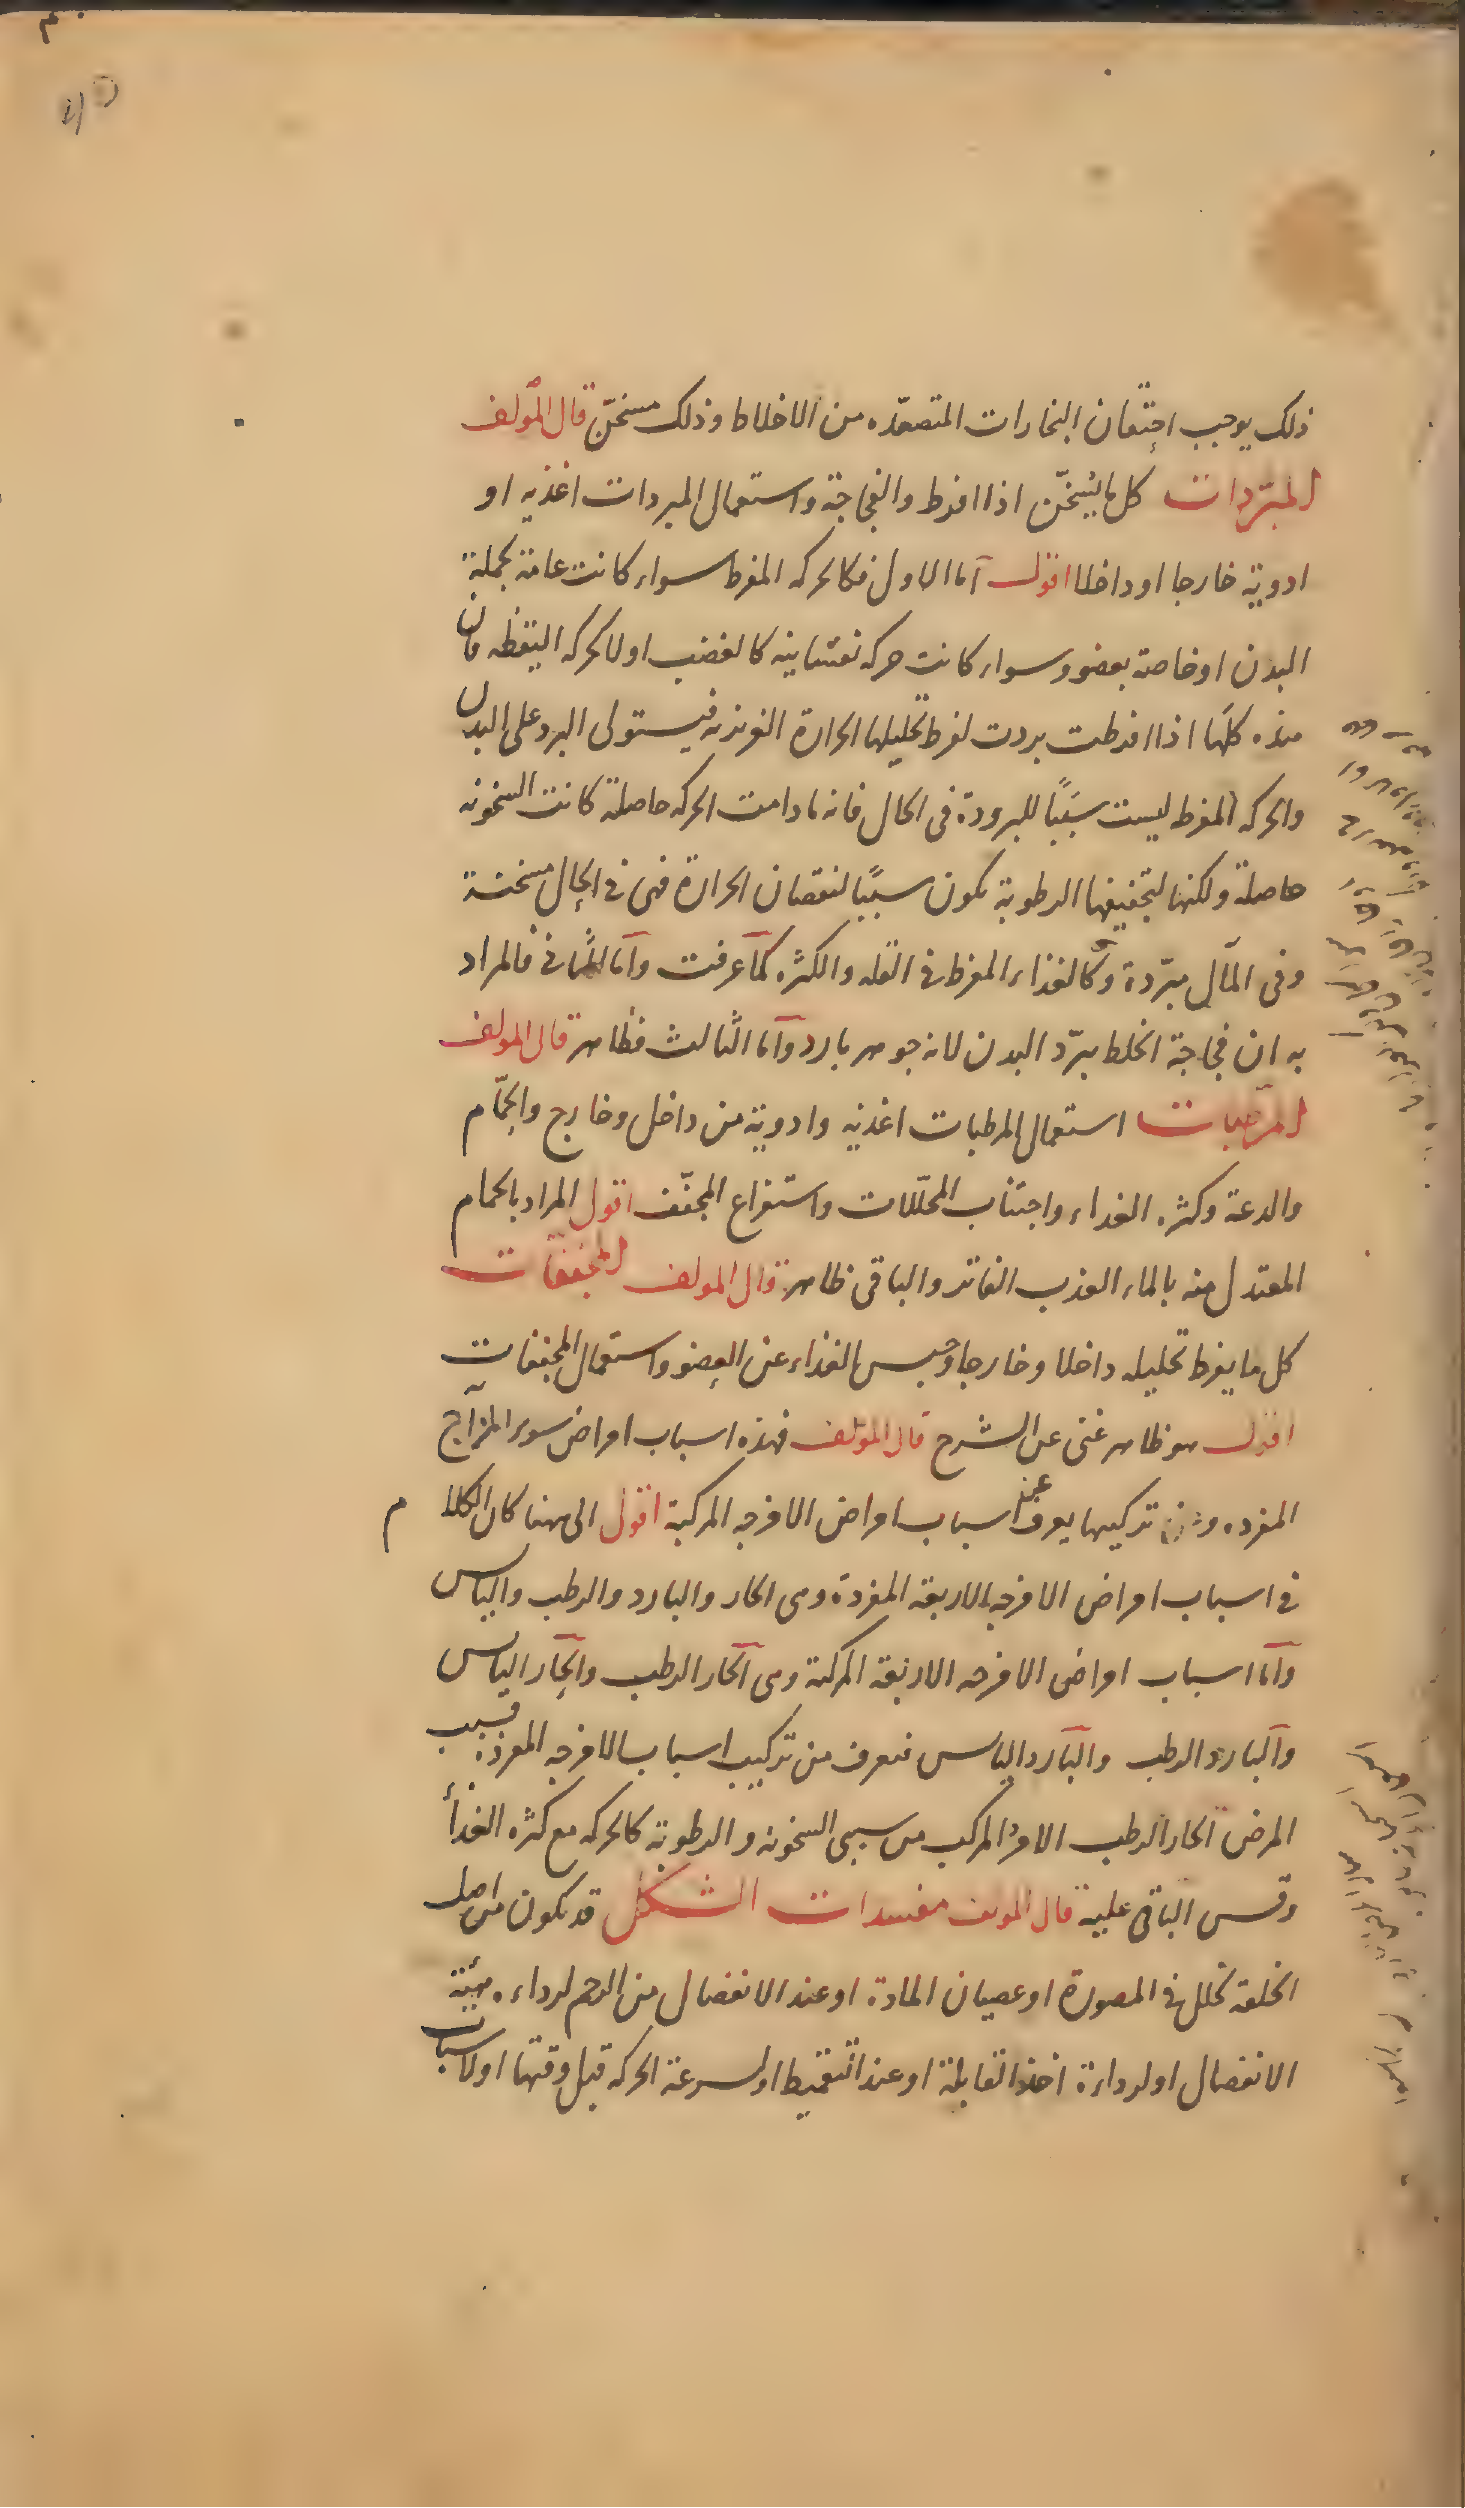 ذلك يوجب احتقان البخارات المتصعّده من الاخلاط وذلك مسخّن قال المؤلف
المبرّدات كل ما يُسخّن اذا افرط والفجاجة واستعمال المبردات اغذيه او
ادوية خارجا او داخلا اقول اما الاول فكالحركه المفرطه سواء كانت عامة بجملة
البدن او خاصة بعضو وسواء كانت حركه نفسانية كالغضب او لا كحركه اليقظه فان
هذه كلّها اذا افرطت بردت لفرط تحليلها الحرارة الغريزيه فيستولى البرد على البدن
والحركه المفرطه ليست سَبَبًا للبرودة فى الحال فانه ما دامت الحركه حاصلة كانت السخونه
حاصلة ولكنها لتجفيفها الرطوبة يكون سببًا لنقصان الحرارة فهى فى الحال مسخنة
وفى المآل مبرّدة وكالغذاء المفرط فى القله والكثره كما عرفت واما الثانى فالمراد
به ان فجاجة الخلط يبرّد البدن لانه جوهر بارد واما الثالث فظاهر قال المولف
المرطّبات استعمال المرطبات اغذيه وادوية من داخل وخارج والحمّام
والدعة وكثره الغداء واجتناب المحلّلات واستفراغ المجفّف اقول المراد بالحمام
المعتدل منه بالماء العذب الفاتر والباقى ظاهر قال المولف المجففات
كل ما يفرط تحليله داخلا وخارجا وحبس الغذاء عن العضو واستعمال المجففات
اقول هو ظاهر غنى عن الشرح قال المؤلف فهذه اسباب امراض سوء المزاج
المفرده ومن تركيبها يعرف اسباب امراض الامزجه المركبة اقول الى ههنا كان الكلام
فى اسباب امراض الامزجه الاربعة المفردة وهى الحار والبارد والرطب واليابس
واما اسباب امراض الامزجه الاربعة المركبة وهى الحار الرطب والحار اليابس
والبارد الرطب والبارد اليابس فتعرف من تركيب اسباب الامزجه المفرده فسبب
المرض الحار الرطب الامر المركب من سببى السخونة والرطوبة كالحركه مع كثره الغذاء
وقس الباقى عليه قال المولف مفسدات الشكل قد يكون من اصل
الخلقة لخلل فى المصورة او عصيان المادة او عند الانفصال من الرحم لرداءه هيئة
الانفصال او لرداءة اخذ القابلة او عند التقميط او لسرعة الحركه قبل وقتها او لاسباب